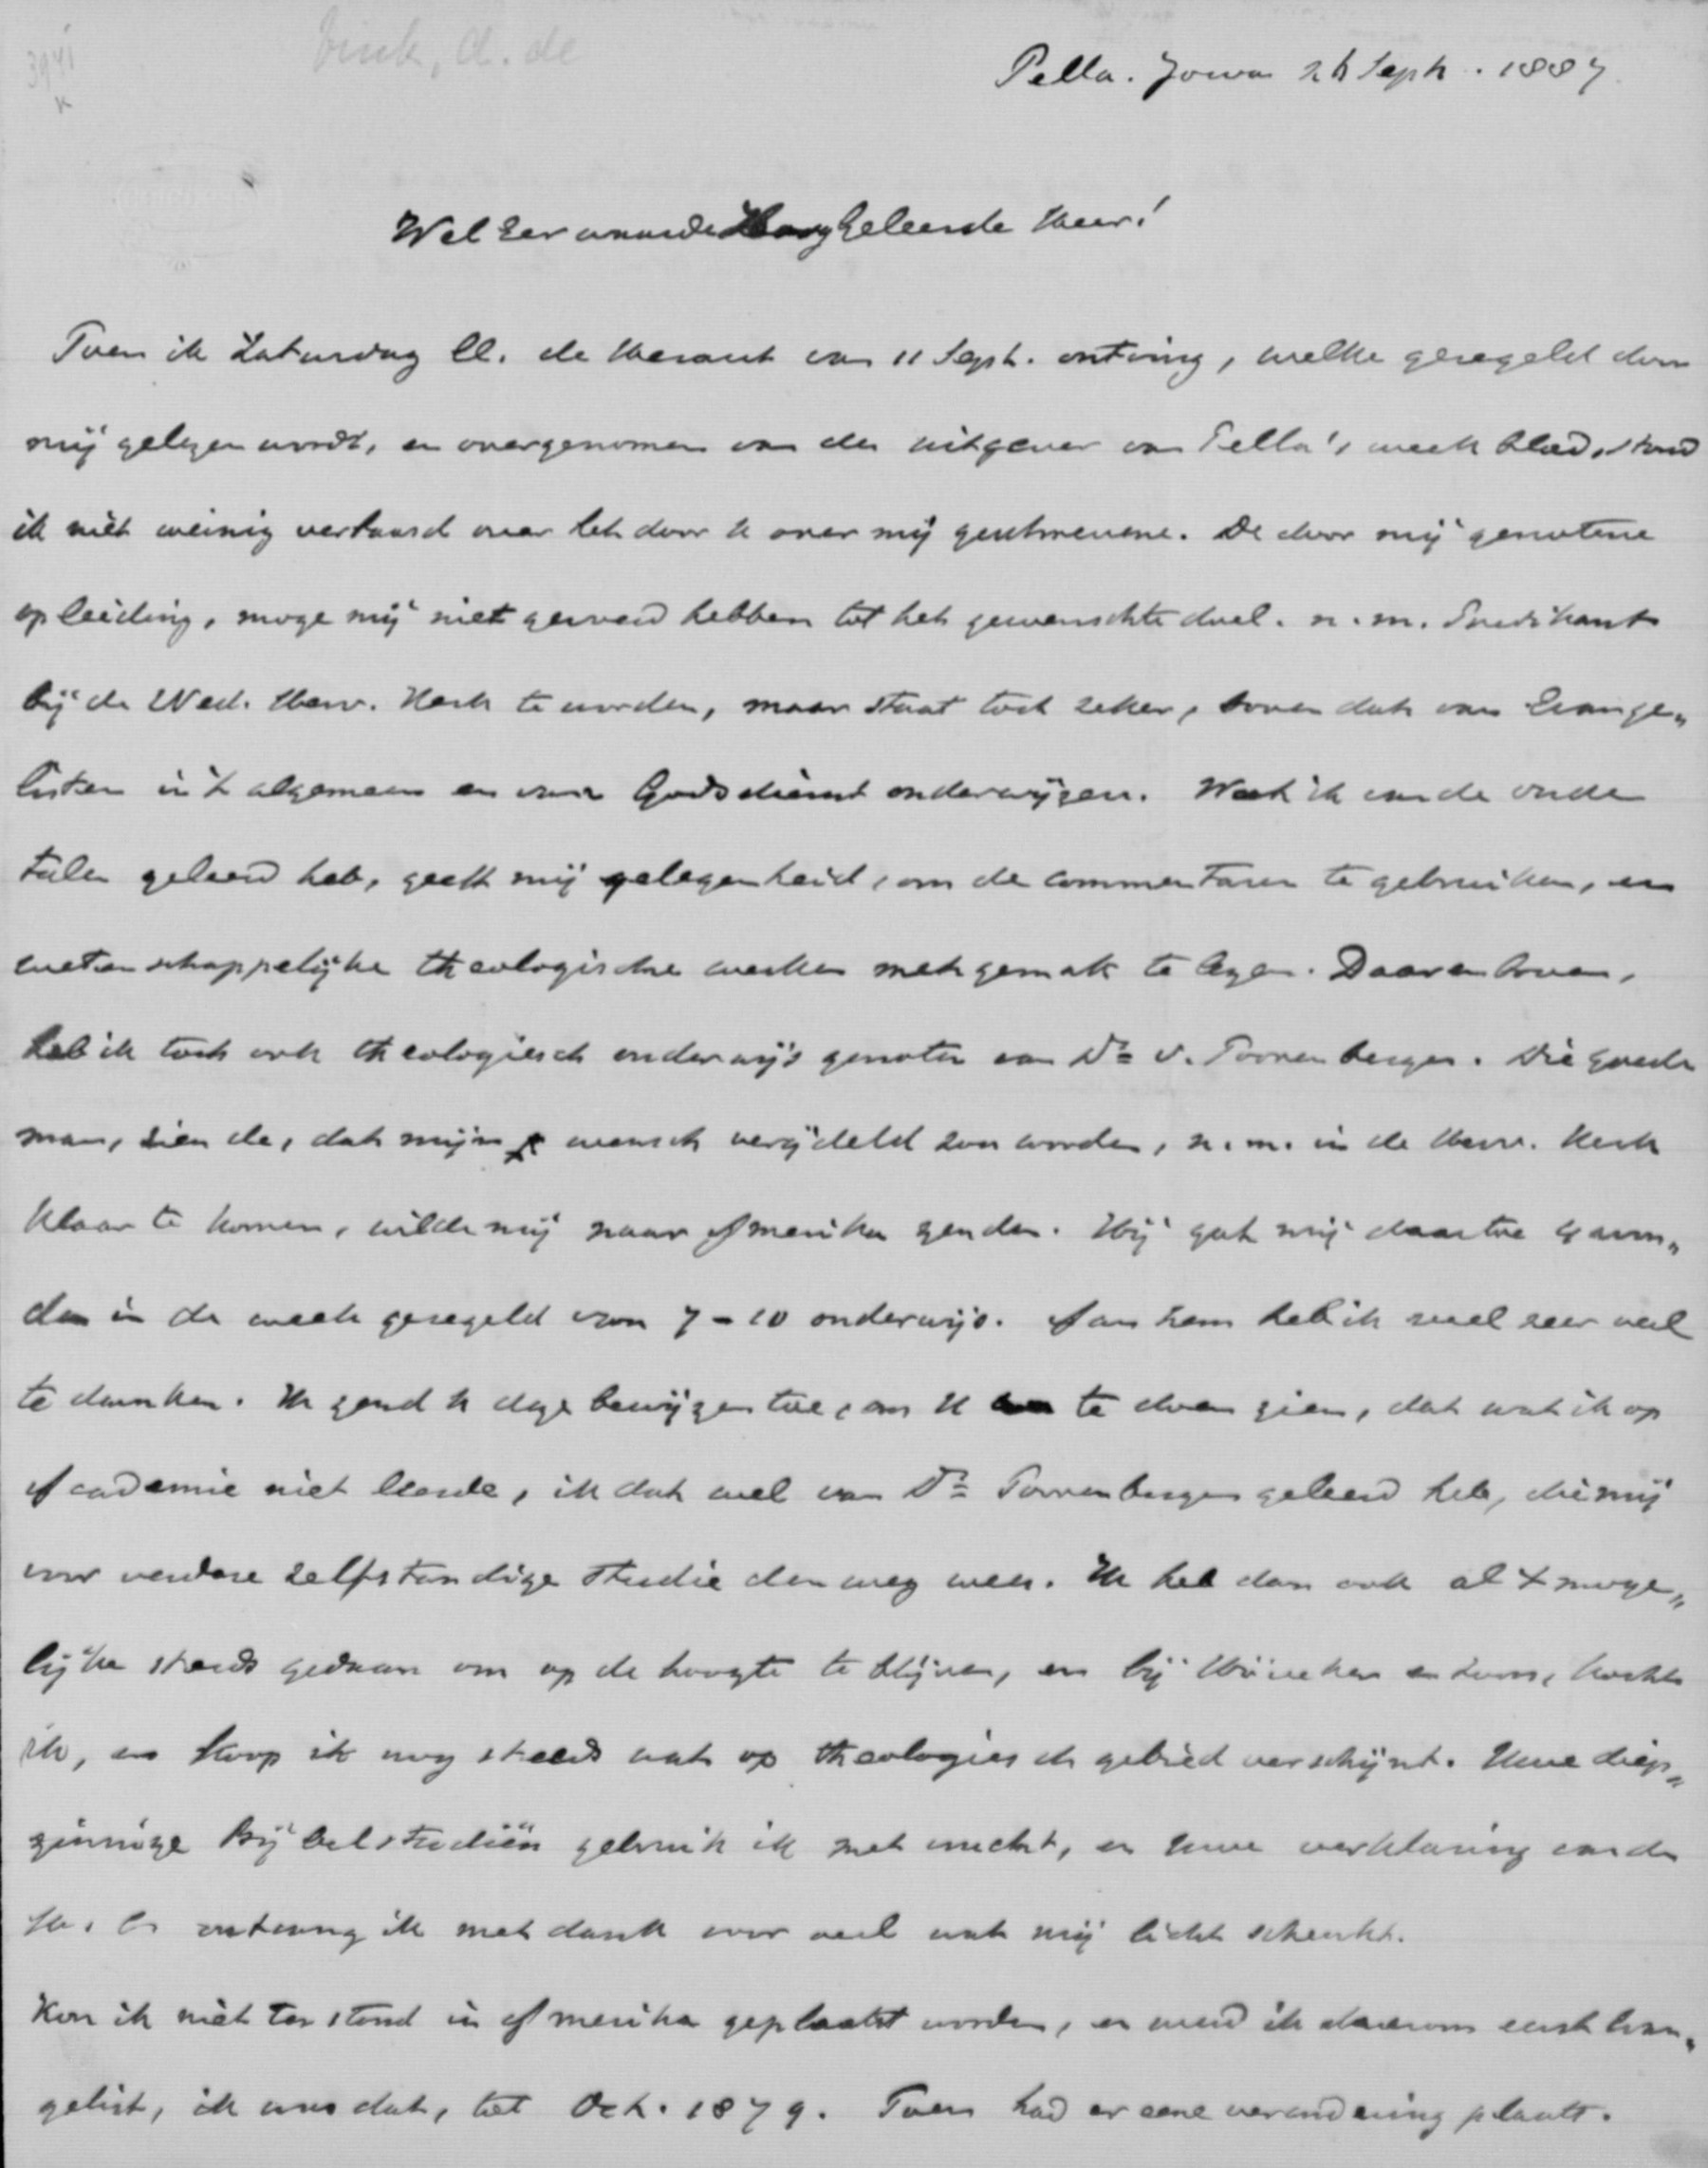 3941
K
Vink, A. de
Pella. Jowa 26 Sept. 1887
WelEerwaarde HoogGeleerde Heer!
Toen ik Zaturdag ll. de Heraut van 11 Sept. ontving, welke geregeld door
mij gelezen wordt, en overgenomen van den uitgever van Pella's weekblad, stond
ik niet weinig verbaasd over het door U over mij geschrevene. De door mij genotene
opleiding, moge mij niet gevoerd hebben tot het gewenschte doel. n.m. Predikant
bij de Ned. Herv. Kerk te worden, maar staat toch zeker, boven dat van Evange„
listen in 't algemeen en van Godsdienstonderwijzers. Wat ik van de oude
talen geleerd heb, geeft mij gelegenheid, om de commentaren te gebruiken, en
wetenschappelijke theologische werken met gemak te lezen. Daarenboven,
heb ik toch ook theologiesch onderwijs genoten van Ds v. Toorenbergen. Die goede
man, ziende, dat mijn wensch verijdeld zou worden, n.m. in de Herv. Kerk
klaar te komen, wilde mij naar Amerika zenden. Hij gaf mij daartoe 4 avon„
den in de week geregeld van 7-10 onderwijs. Aan hem heb ik veel zeer veel
te danken. Ik zend U deze bewijzen toe, om U te doen zien, dat wat ik op
Academie niet leerde, ik dat wel van Ds Toorenbergen geleerd heb, die mij
voor verdere zelfstandige studie den weg wees. Ik heb dan ook al 't moge„
lijke steeds gedaan om op de hoogte te blijven, en bij Höveker en Zoon, kocht
ik, en koop ik nog steeds wat op theologiesch gebied verschijnt. Uwe diep„
zinnige Bijbelstudiën gebruik ik met vrucht, en uwe verklaring van den
H. C. ontvang ik met dank voor veel wat mij licht schenkt.
Kon ik niet terstond in Amerika geplaatst worden, en werd ik daarom eerst Evan„
gelist, ik was dat, tot Oct. 1879. Toen had er eene verandering plaats.